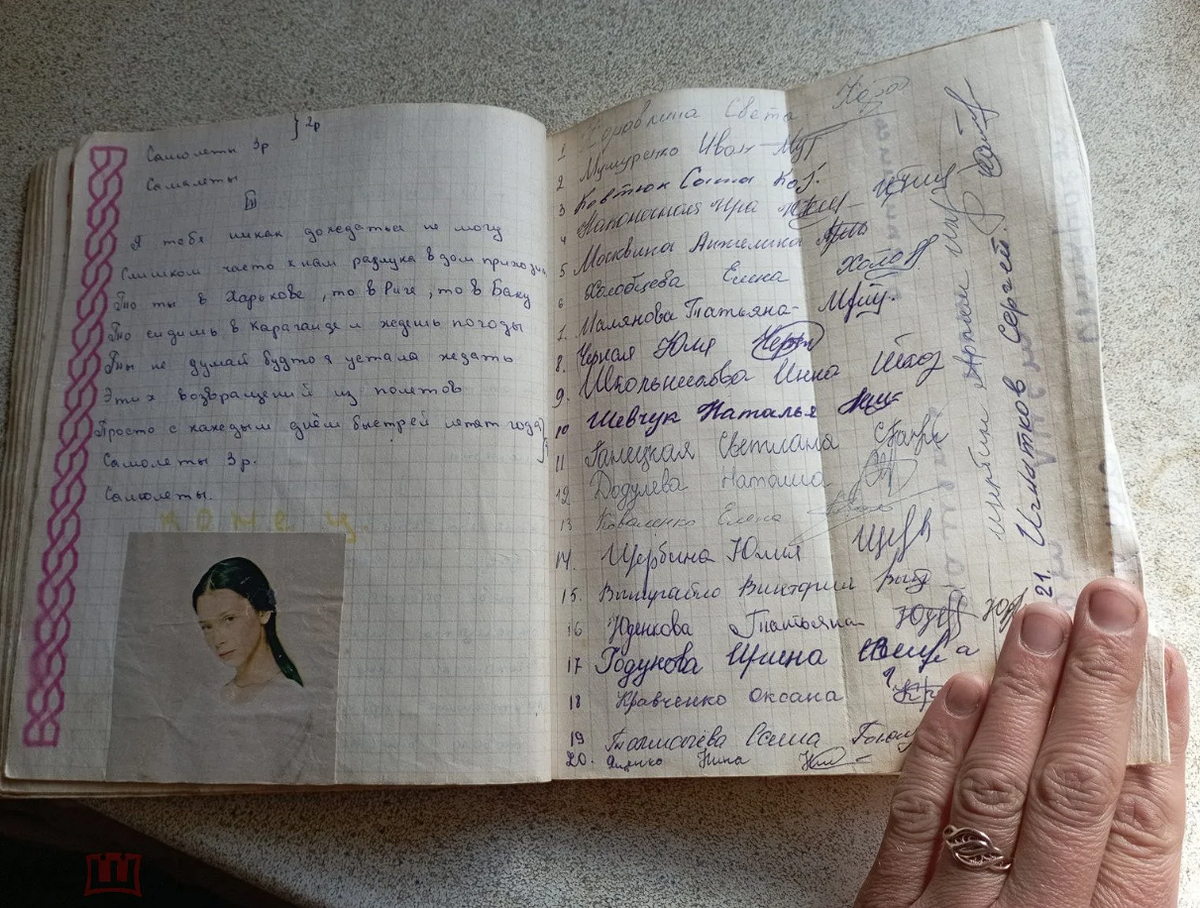 Самолеты 3р } 2р
Самолеты
II
Я тебя никак дождаться не могу
Слишком часто к нам разлука в дом приходит
То ты в Харькове, то в Риге, то в Баку
То сидишь в Караганде и ждешь погоды
Ты не думай будто я устала ждать
Этих возвращений из полетов
Просто с каждым днём быстрей летят года
Самолеты 3р.
Самолеты.
конец.
1 Света
2 Мушуренко Иван
3 Ковтюк Саша Ков.
4 Наконечная Ира
5 Москвина Анжелина
6 Холобцева Елена Холоб
7. Малянова Татьяна
8. Черная Юля Черн
9. Школьникова Инна Школ
10 Шевчук Наталья
11 Ганецкая Светлана
12 Додулева Наташа
13 Коваленко Елена
14. Щербина Юлия Щерб
15. Виктория
16 Юденкова Татьяна Юден
17 Годунова Ирина
18 Кравченко Оксана Кр
19 Толмачёва Саша
20. Яценко Нина
21. Игнатков Сергей.